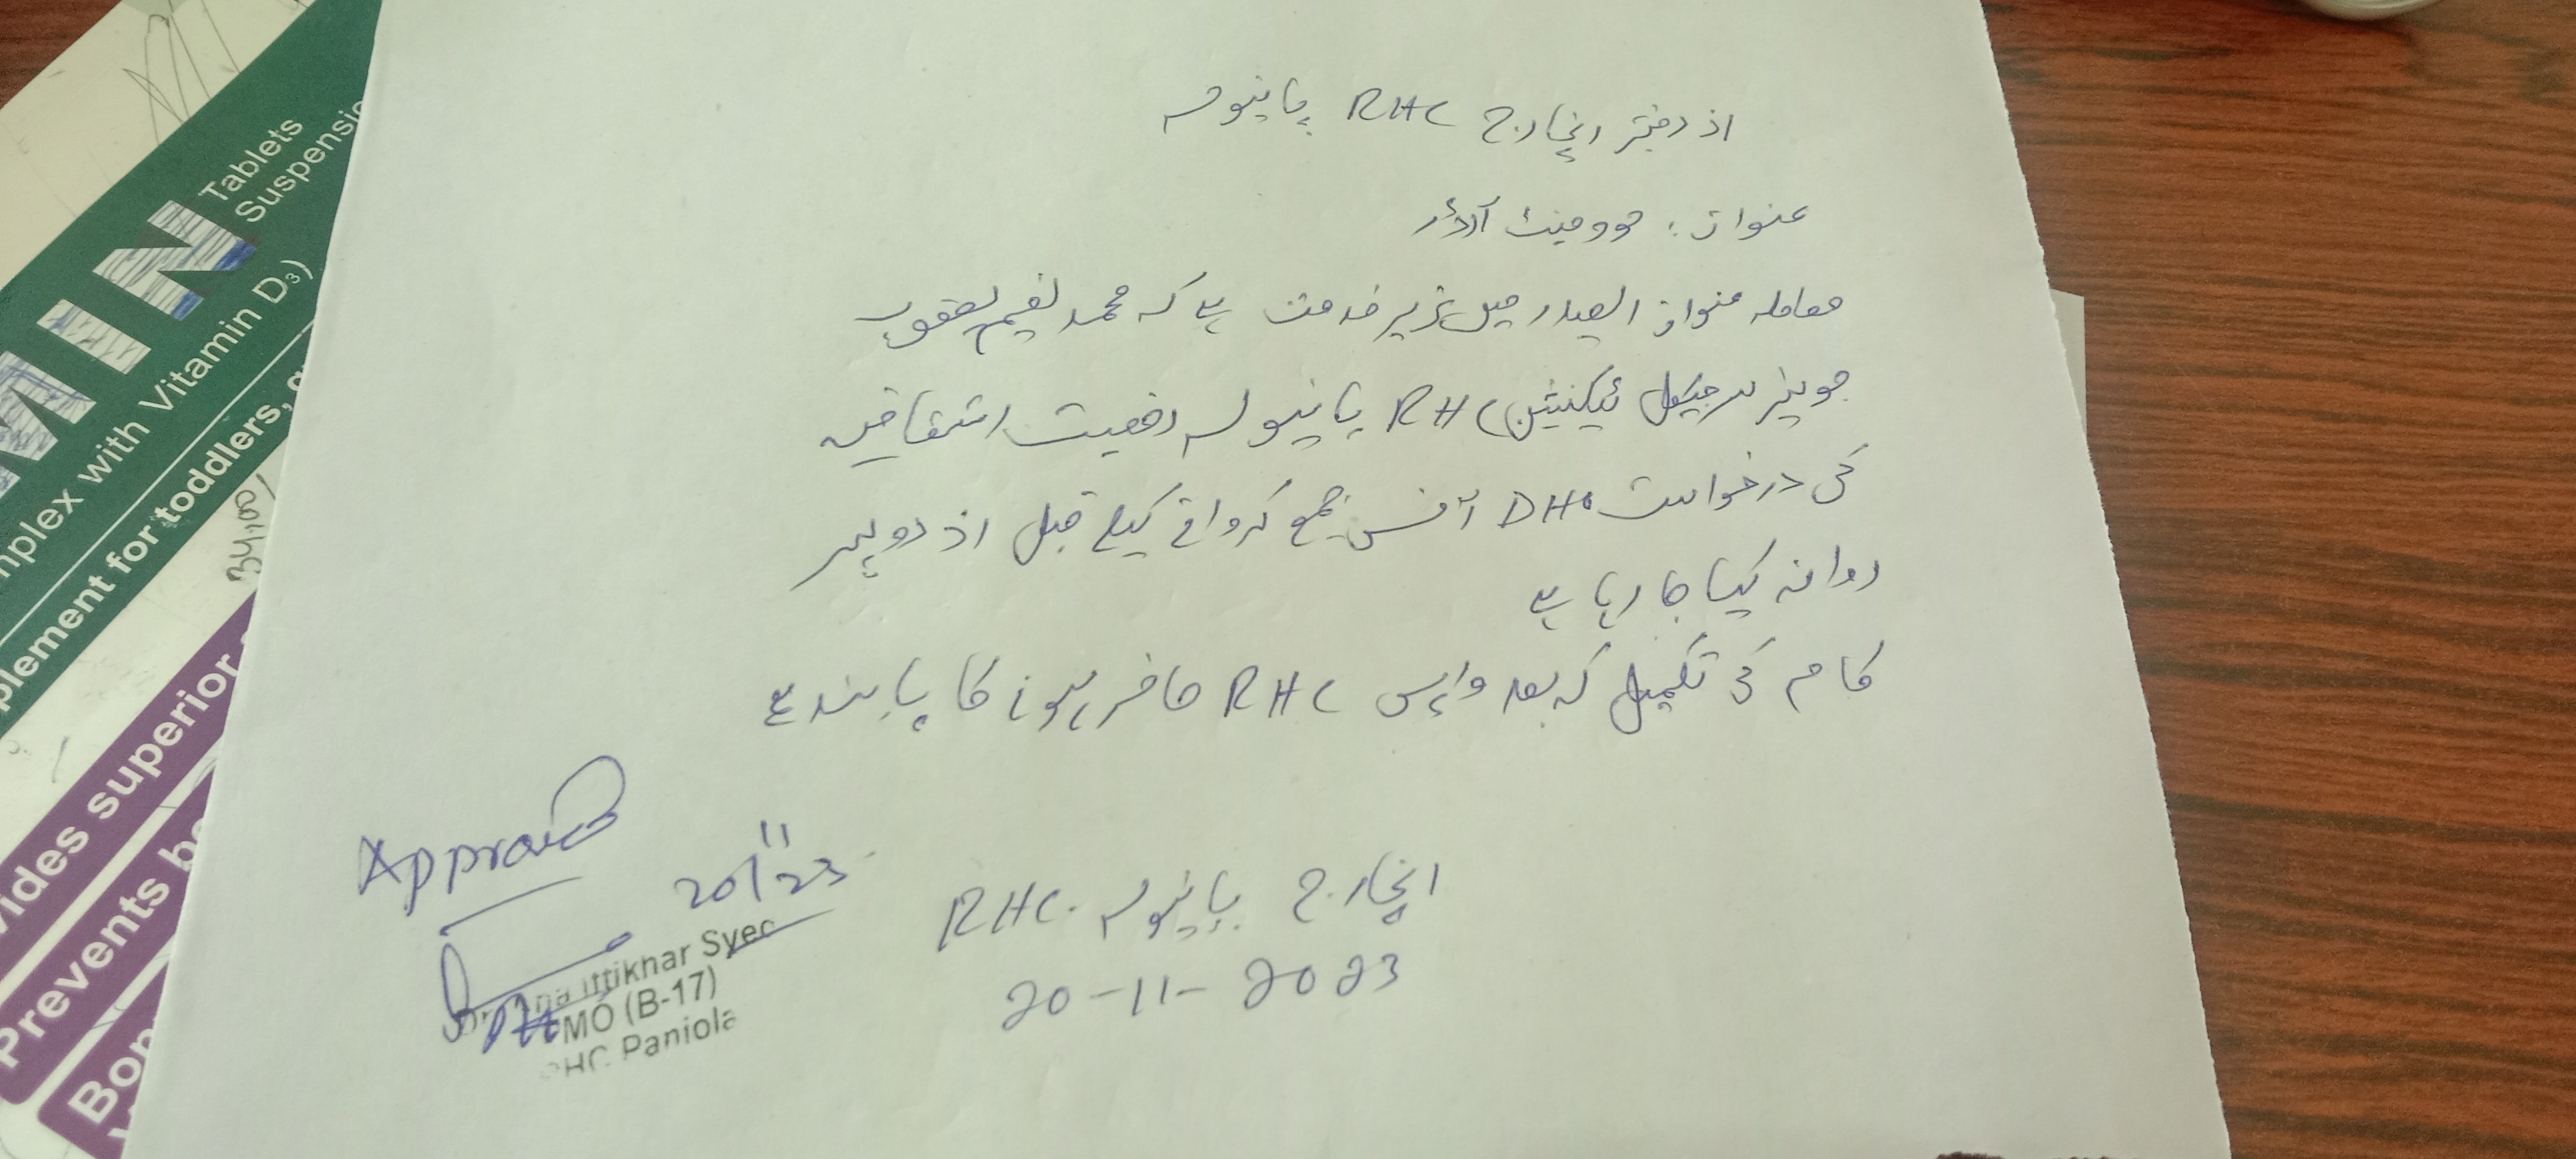 از دفتر انچارج RHC پانیولہ
عنوان : موومینٹ آرڈر
معاملہ عنوان الصدر میں تحریر خدمت ہے کہ محمد نعیم یعقوب
جونیئر سرجیکل ٹیکنیشن RHC پانیولہ رخصت استحقاقی
کی درخواست DHO آفس جمع کروانے کیلئے قبل از دوپہر
روانہ کیا جا رہا ہے
کام کی تکمیل کہ بعد واپس RHC حاضر ہونا کا پابند ہے
Approved
20/11/23
Iftikhar Syed
MO (B-17)
RHC Paniola
انچارج پانیولہ RHC.
20-11-2023
MIN
Tablets
Suspensio
mplex with Vitamin D₃)
plement for toddlers,
vides superior
Prevents bo
Bon